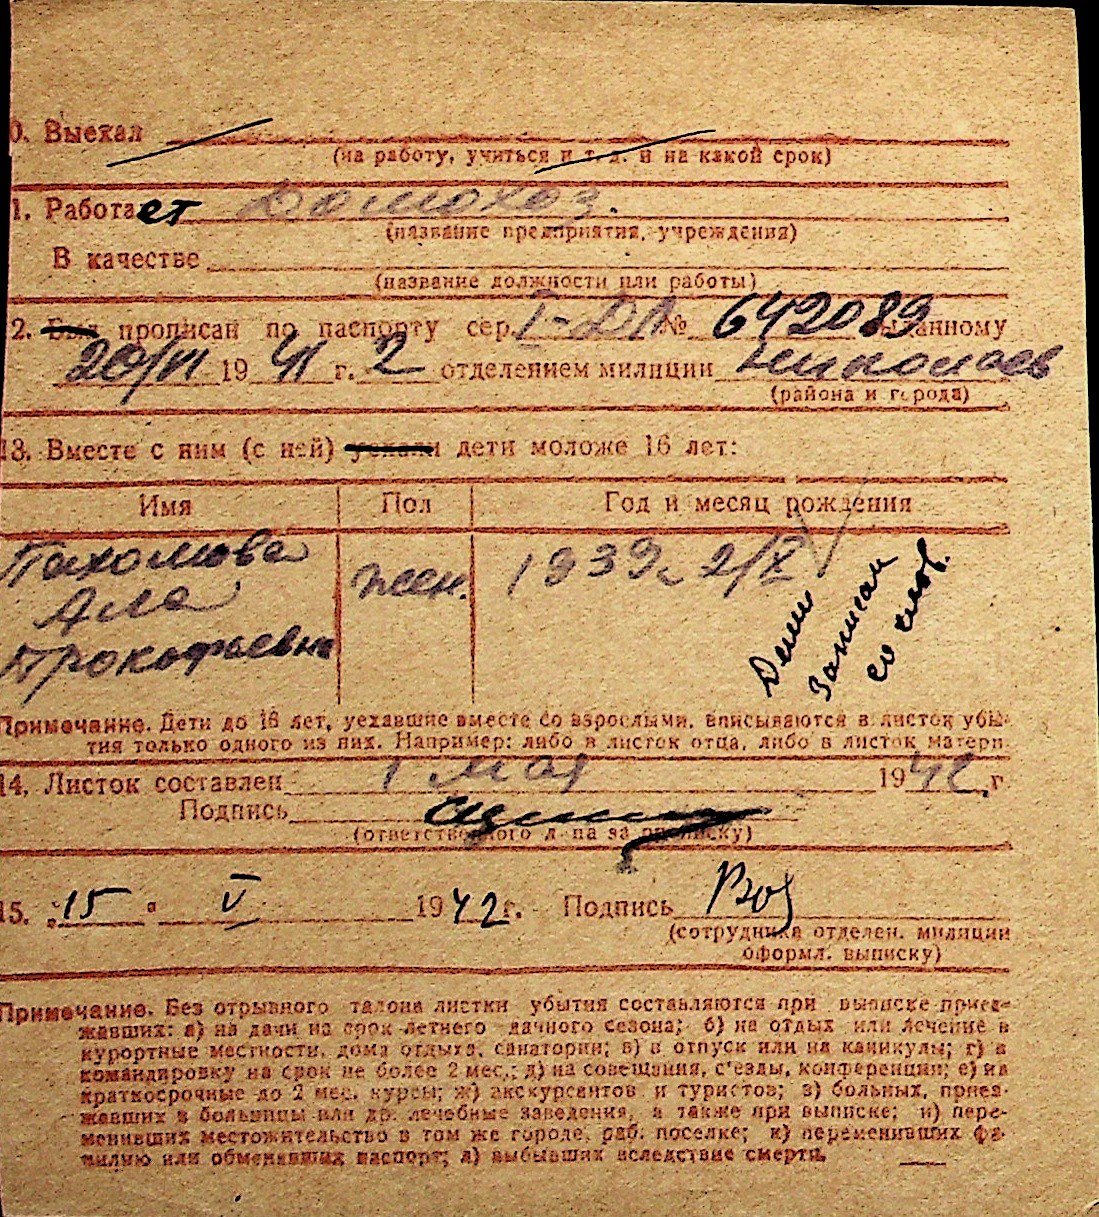 0. Выехал
(на работу, учиться и т. д. и на какой срок)
1. Работает Домохоз.
(название предприятия, учреждения)
В качестве
(название должности или работы)
2. Был прописан по паспорту сер. I-ДЛ № 642089 выданному
20/VI 1941 г. 2 отделением милиции Николаев
(района и города)
13. Вместе с ним (с ней) уехали дети моложе 16 лет:
Имя Пол Год и месяц рождения
Пахомова жен. 1939 г. 2/X
Ала
Прокофаевна
Дети
записан
со слов.
Примечание. Дети до 16 лет, уехавшие вместе со взрослыми, вписываются в листок убы-
тия только одного из них. Например: либо в листок отца, либо в листок матери.
14. Листок составлен 1 мая 1942 г.
Подпись
(ответственного лица за прописку)
15. „15" V 1942 г. Подпись
(сотрудника отделен. милиции
оформл. выписку)
Примечание. Без отрывного талона листки убытия составляются при выписке приез-
жавших: а) на дачи на срок летнего дачного сезона; б) на отдых или лечение в
курортные местности, дома отдыха, санатории; в) в отпуск или на каникулы; г) в
командировку на срок не более 2 мес.; д) на совещания, с'езды, конференции; е) на
краткосрочные до 2 мес. курсы; ж) экскурсантов и туристов; з) больных, приез-
жавших в больницы или др. лечебные заведения, а также при выписке; и) пере-
менивших местожительство в том же городе, раб. поселке; к) переменивших фа-
милию или обменявших паспорт; л) выбывших вследствие смерти.